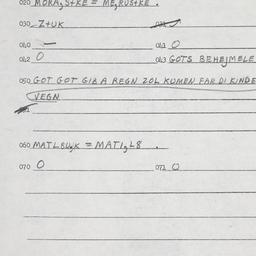 020 MORA, S+KE = ME, RUS+KE.
030 Z+UK
040 — 041 O
042 O 043 GOTS BEHEJMELE
050 GOT GOT GIB A REGN ZOL KUMEN FAR DI KINDE
VEGN
060 MATLBUJK = MATI, L8.
070 O 071 O